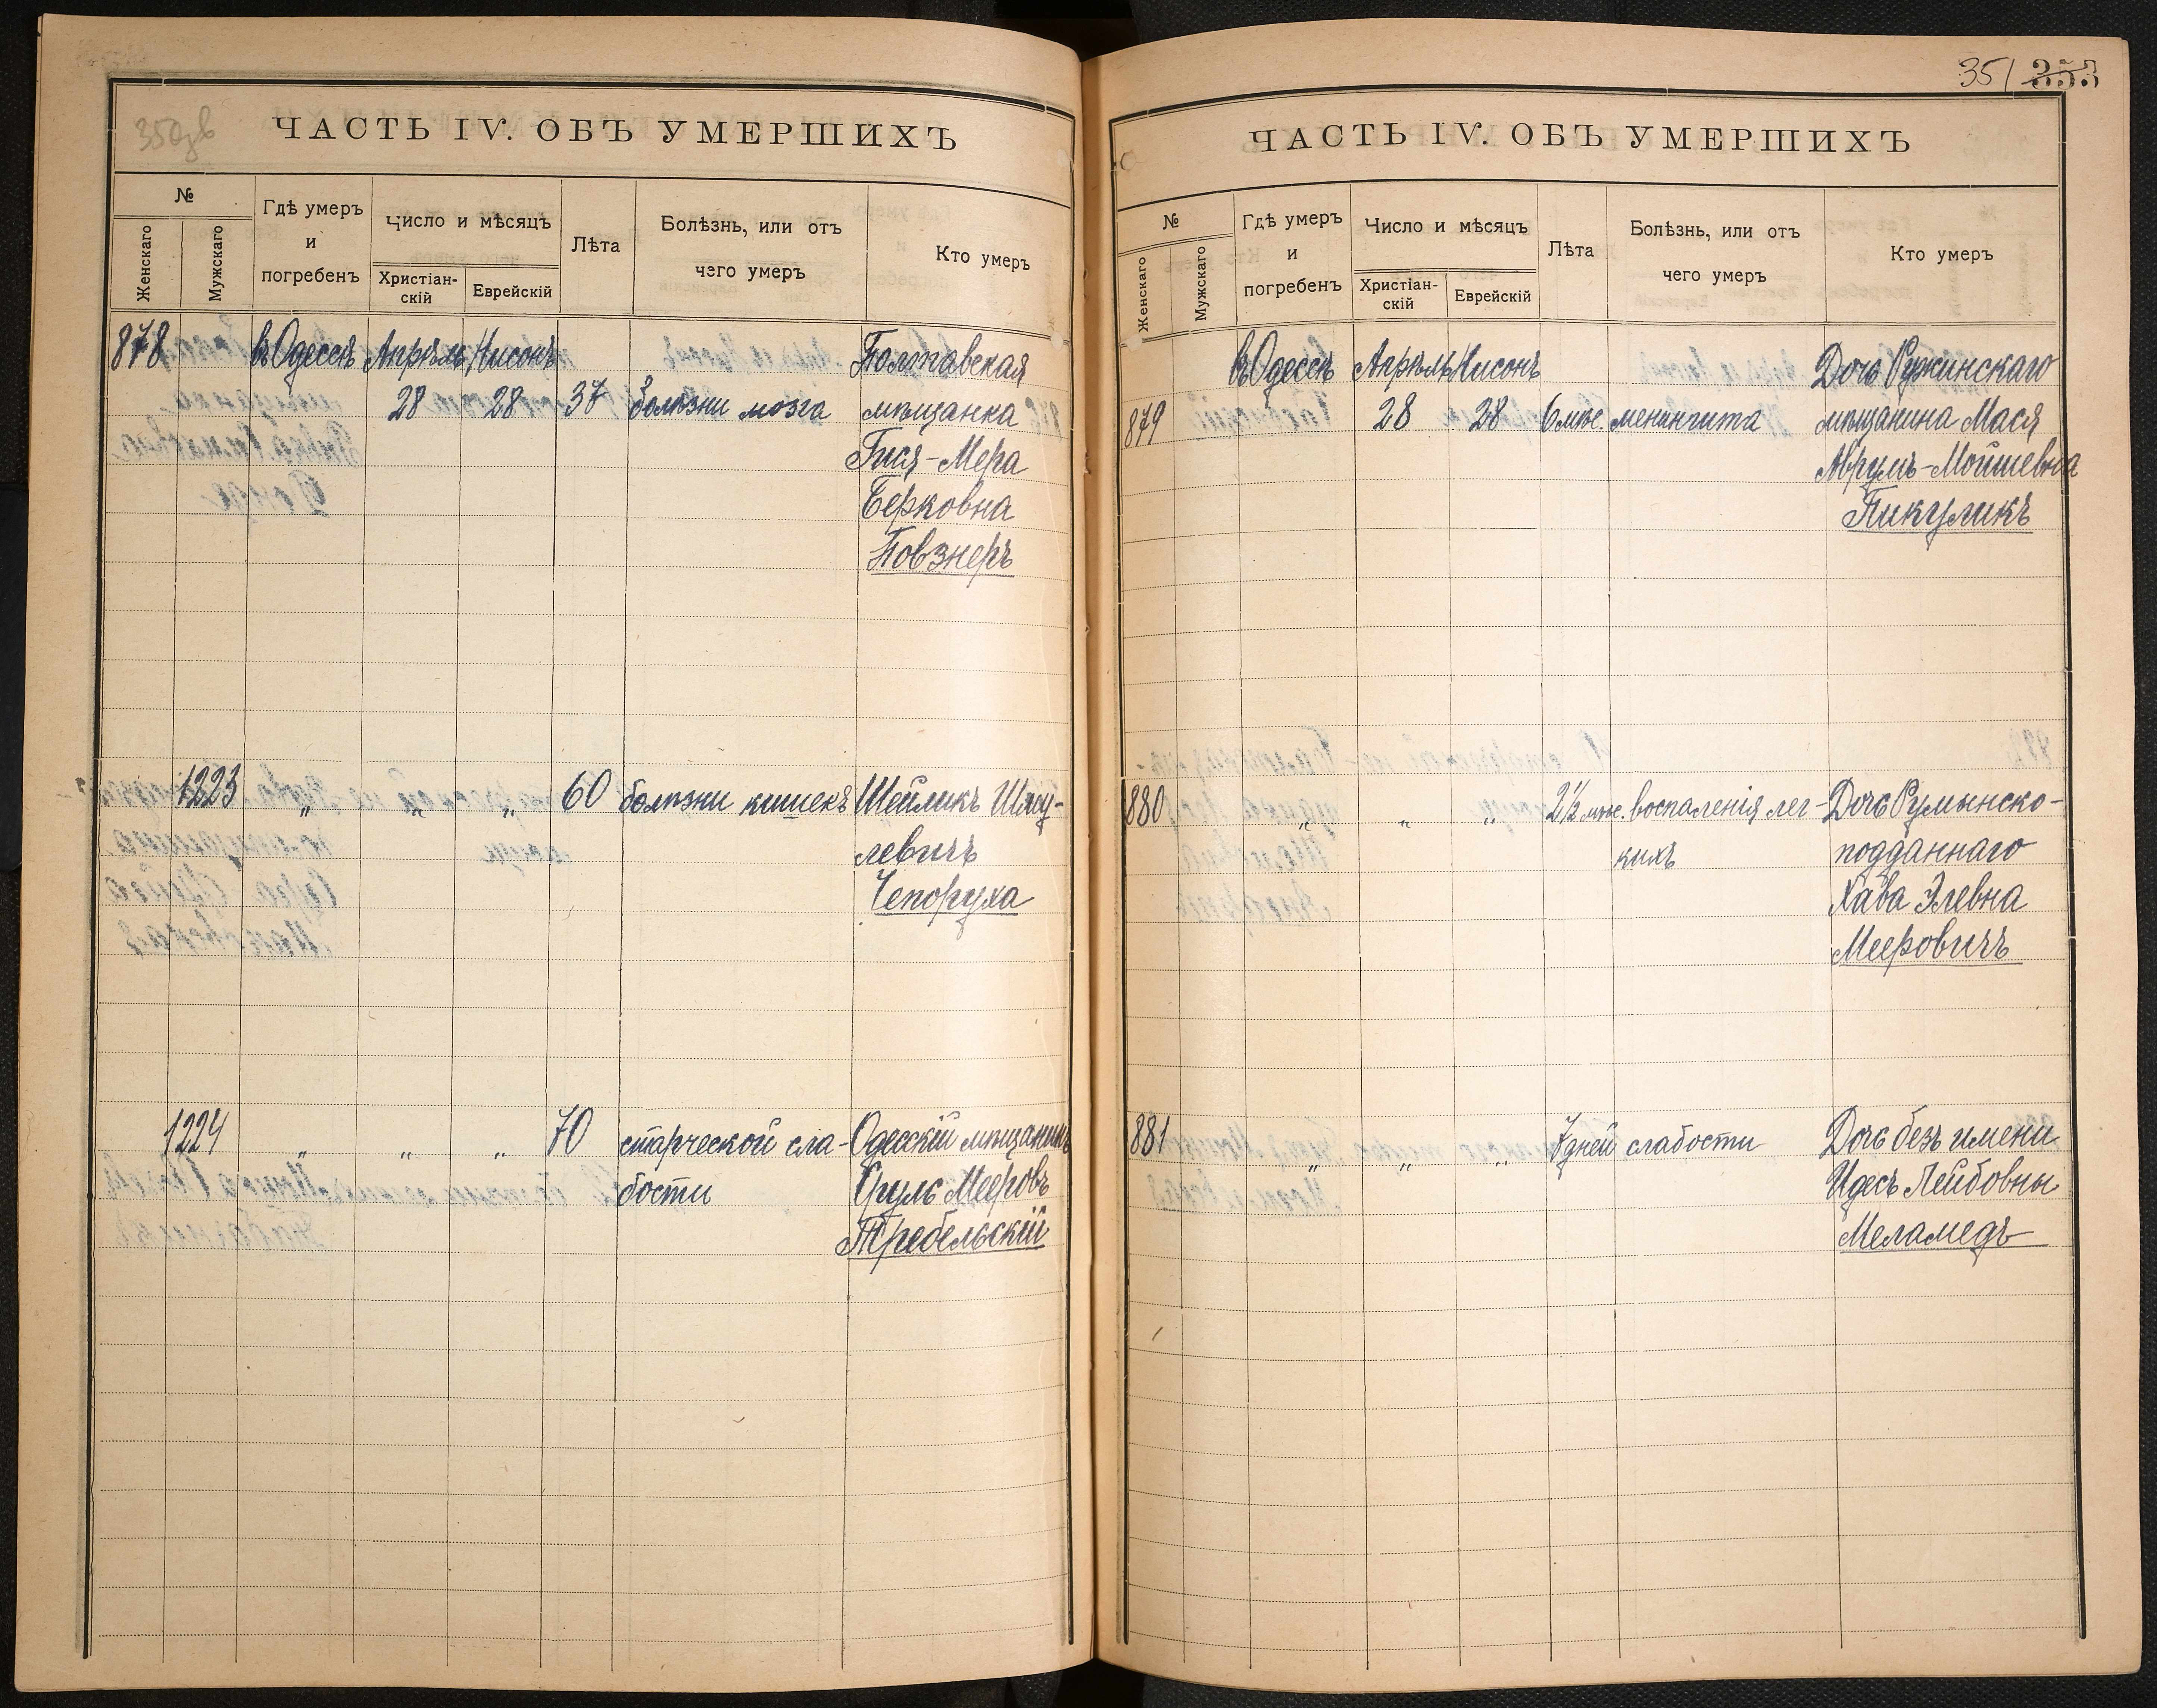 350зв
ЧАСТЬ IV. ОБЪ УМЕРШИХЪ
№
Женскаго
Мужскаго
Гдѣ умеръ
и
погребенъ
Число и мѣсяцъ
Христіан-
скій
Еврейскій
Лѣта
Болѣзнь, или отъ
чего умеръ
Кто умеръ
878 въ Одессѣ Апрѣль Нисонъ Полтавская
28 28 37 болѣзни мозга мѣщанка
Гися-Мера
Берковна
Повзнеръ
1223 „ „ „ 60 болѣзни кишекъ Шейликъ Шму-
левичъ
Чепоруха
1224 „ „ „ 70 старческой сла- Одесскій мѣщанинъ
бости Сруль Мееровъ
Требельскій
351 353
ЧАСТЬ IV. ОБЪ УМЕРШИХЪ
№
Женскаго
Мужскаго
Гдѣ умеръ
и
погребенъ
Число и мѣсяцъ
Христіан-
скій
Еврейскій
Лѣта
Болѣзнь, или отъ
чего умеръ
Кто умеръ
въ Одессѣ Апрѣль Нисонъ Дочь Ружинскаго
879 28 28 6 мѣс. менингита мѣщанина Мася
Аврумъ-Мойшевна
Пикуликъ
880 „ „ „ 2½ мѣс. воспаленія лег- Дочь Румынско-
кихъ подданнаго
Хава Элевна
Мееровичъ
881 „ „ „ 7 дней слабости Дочь безъ имени
Идесъ Лейбовны
Меламедъ